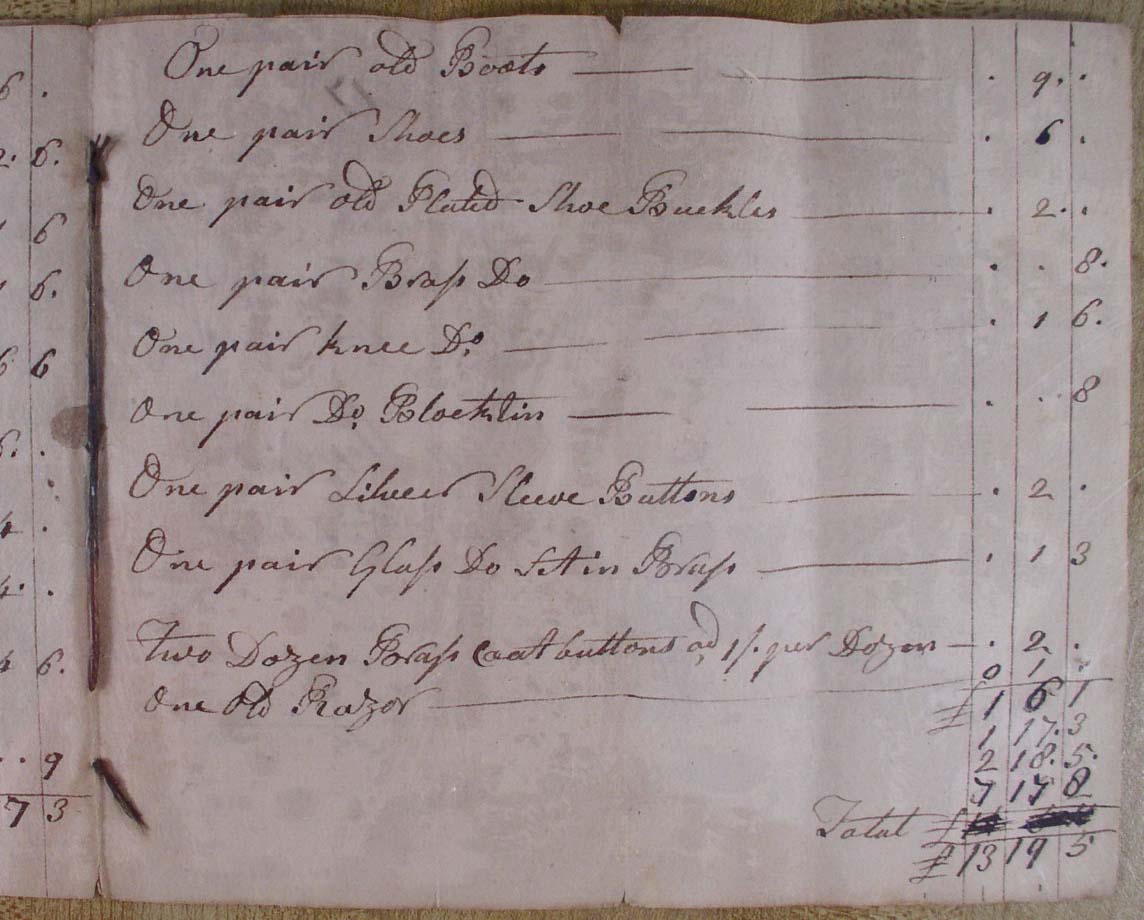 6 .
One pair old Boots . 9 . .
2. 6.
One pair Shoes . 6 .
1 6
One pair old Plated Shoe Buckles . 2 . .
1 6.
One pair Braſs Do . . 8.
6 6
One pair knee Do. . 1 6.
6. .
One pair Do. Blocktin . . 8
4 .
One pair Silveer Sleeve Buttons . 2 .
4. .
One pair Glaſs Do Set in Braſs . 1 3
4 6.
Two Dozen Braſs Coatbuttons ad 1/. per Dozen . 2 .
One Old Razor 0 1 .
. . 9
£ 1 6 1
7 3
1 17. 3
2 18. 5.
7 17 8
Total £
£ 13 19 5